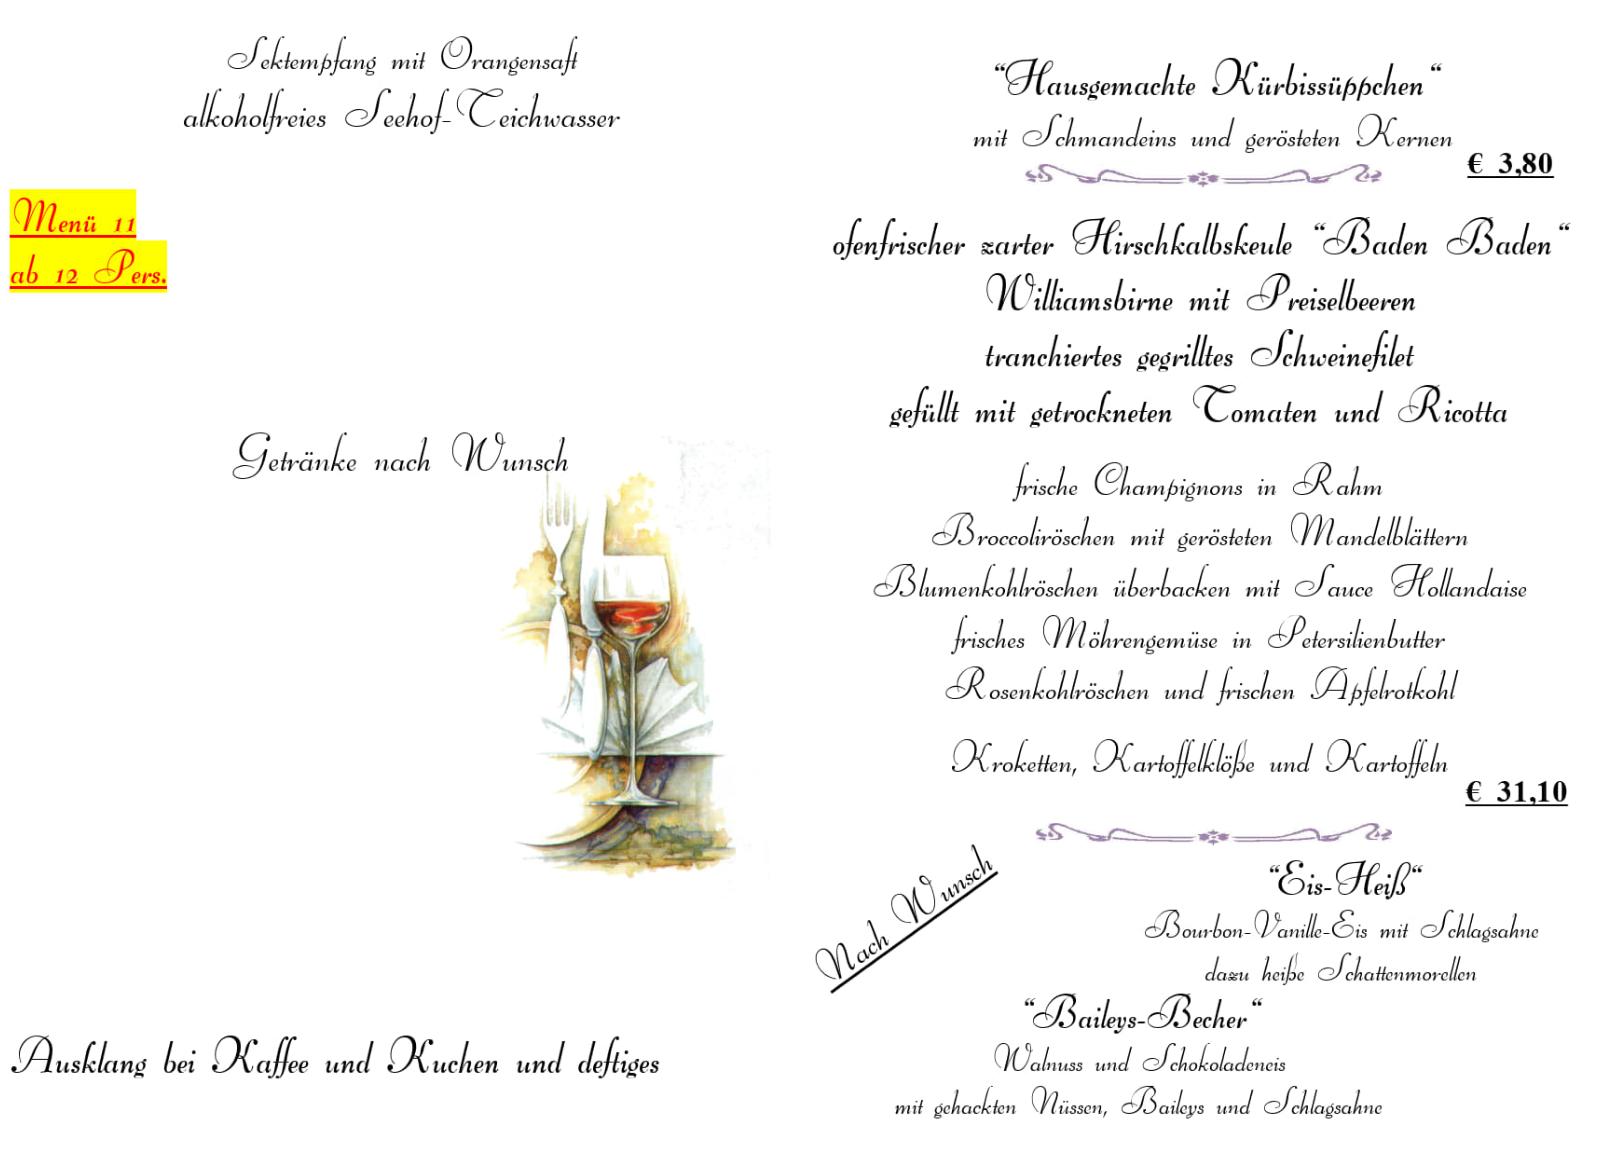 Sektempfang mit Orangensaft
alkoholfreies Seehof-Teichwasser
Menü 11
ab 12 Pers.
Getränke nach Wunsch
Ausklang bei Kaffee und Kuchen und deftiges
“Hausgemachte Kürbissüppchen“
mit Schmandeins und gerösteten Kernen
€ 3,80
ofenfrischer zarter Hirschkalbskeule “Baden Baden“
Williamsbirne mit Preiselbeeren
tranchiertes gegrilltes Schweinefilet
gefüllt mit getrockneten Tomaten und Ricotta
frische Champignons in Rahm
Broccoliröschen mit gerösteten Mandelblättern
Blumenkohlröschen überbacken mit Sauce Hollandaise
frisches Möhrengemüse in Petersilienbutter
Rosenkohlröschen und frischen Apfelrotkohl
Kroketten, Kartoffelklöße und Kartoffeln
€ 31,10
Nach Wunsch
“Eis-Heiß“
Bourbon-Vanille-Eis mit Schlagsahne
dazu heiße Schattenmorellen
“Baileys-Becher“
Walnuss und Schokoladeneis
mit gehackten Nüssen, Baileys und Schlagsahne